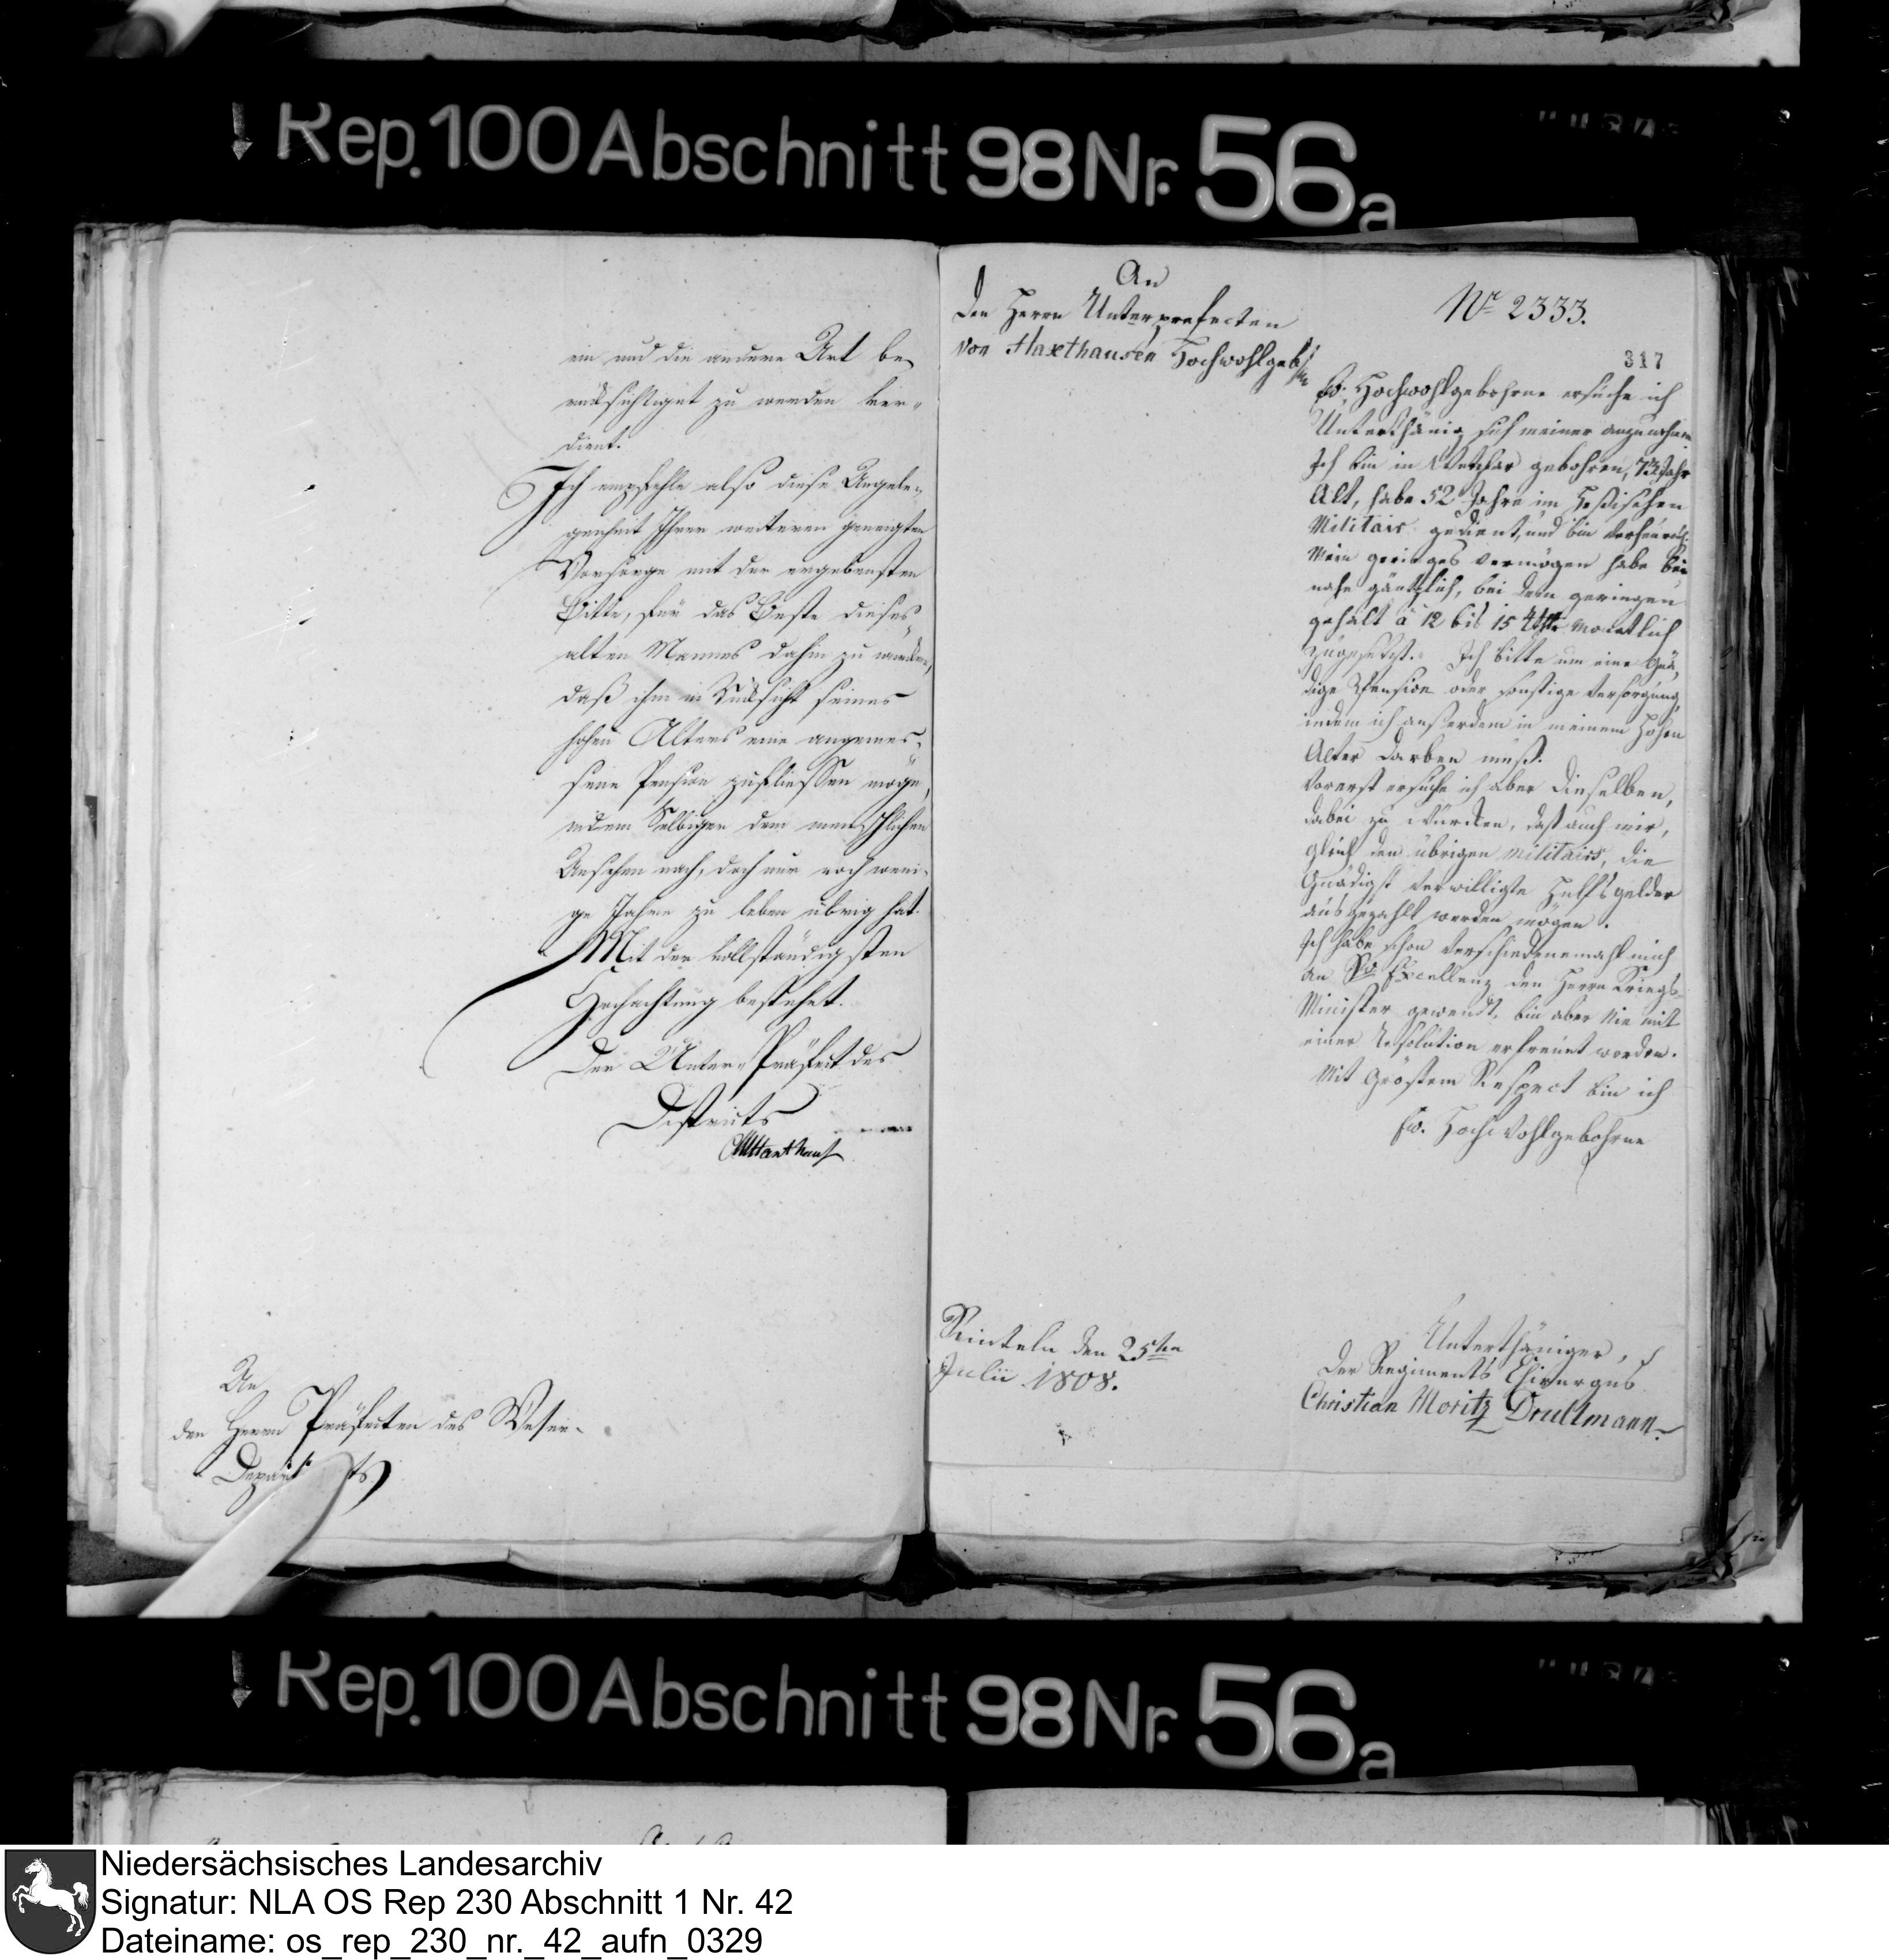 Rep. 100 Abschnitt 98 Nr. 56a
ein und die andere Art be-
rücksichtiget zu werden ver-
dient.
Ich empfehle also diese Angele-
genheit Ihrer weiteren geneigten
Vorsorge mit der ergebensten
Bitte, für das Beste dieses
alten Mannes dahin zu wirken,
daß ihm in Rücksicht seines
hohen Alters eine angemes-
sene Pension zufliessen möge,
indem Selbiger dem menschlichen
Ansehen nach, doch nur noch weni-
ge Jahre zu leben übrig hat.
Mit der vollständigsten
Hochachtung bestehet.
Der Unter-Präfect des
Districts
An
den Herrn Präfecten des Weser-
Departts
An
Den Herrn Unterprefecten
von Haxthausen Hochwohlgeb
Nr 2333.
317
Ew. Hochwohlgebohrne ersuche ich
Unterthänig sich meiner anzunehmen
Ich bin in Wetzlar gebohren, 73 Jahr
Alt, habe 52 Jahre im Heßischen
Militair gedient, und bin verheurath.
Mein geringes Vermögen habe bei
nahe gäntzlich, bei dem geringen
gehalt à 12 bis 15 rthlr Monatlich
zugesetzt. Ich bitte um eine Gnä,
dige Pension oder sonstige Versorgung,
indem ich außerdem in meinem Hohen
Alter Darben muß.
Vorerst ersuche ich aber Dieselben,
dabei zu Würcken, dast auch mir,
gleich den übrigen Militairs, die
Gnädigst verwilligte Hülfsgelder
ausgezahlt werden mögen.
Ich habe schon Verschiedenemahl mich
an Sr Excellenz den Herrn Kriegs-
Minister gewendt, bin aber Nie mit
einer Resolution erfreuet worden.
Mit Grösstem Respect bin ich
Ew. Hochwohlgebohrne
Rinteln den 25ten
Julii 1808.
Unterthäniger,
Der Regiments Chirurgus
Christian Moritz Drullmann.
Rep. 100 Abschnitt 98 Nr. 56a
Niedersächsisches Landesarchiv
Signatur: NLA OS Rep 230 Abschnitt 1 Nr. 42
Dateiname: os_rep_230_nr._42_aufn_0329